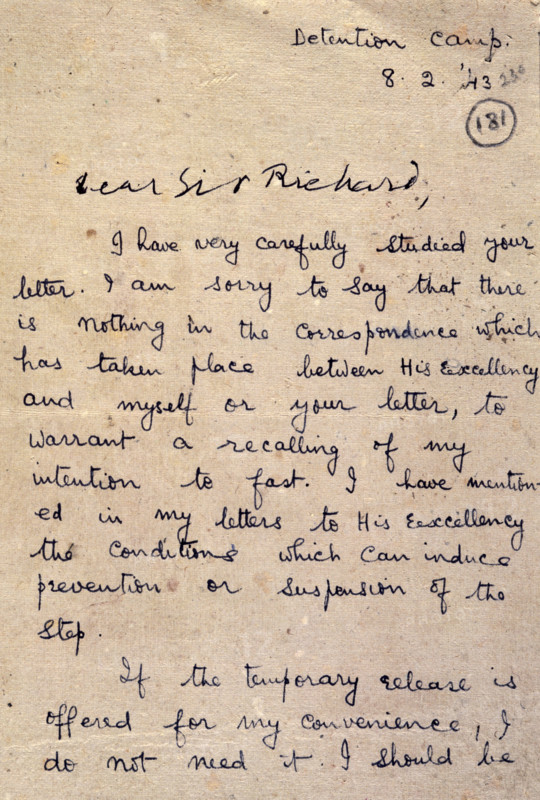 Detention Camp.
8. 2. '43 236
181
Dear Sir Richard,
I have very carefully studied your
letter. I am sorry to say that there
is nothing in the correspondence which
has taken place between His Excellency
and myself or your letter, to
warrant a recalling of my
intention to fast. I have mention-
ed in my letters to His Eexcellency
the conditions which can induce
prevention or suspension of the
step.
If the temporary release is
offered for my convenience, I
do not need it. I should be